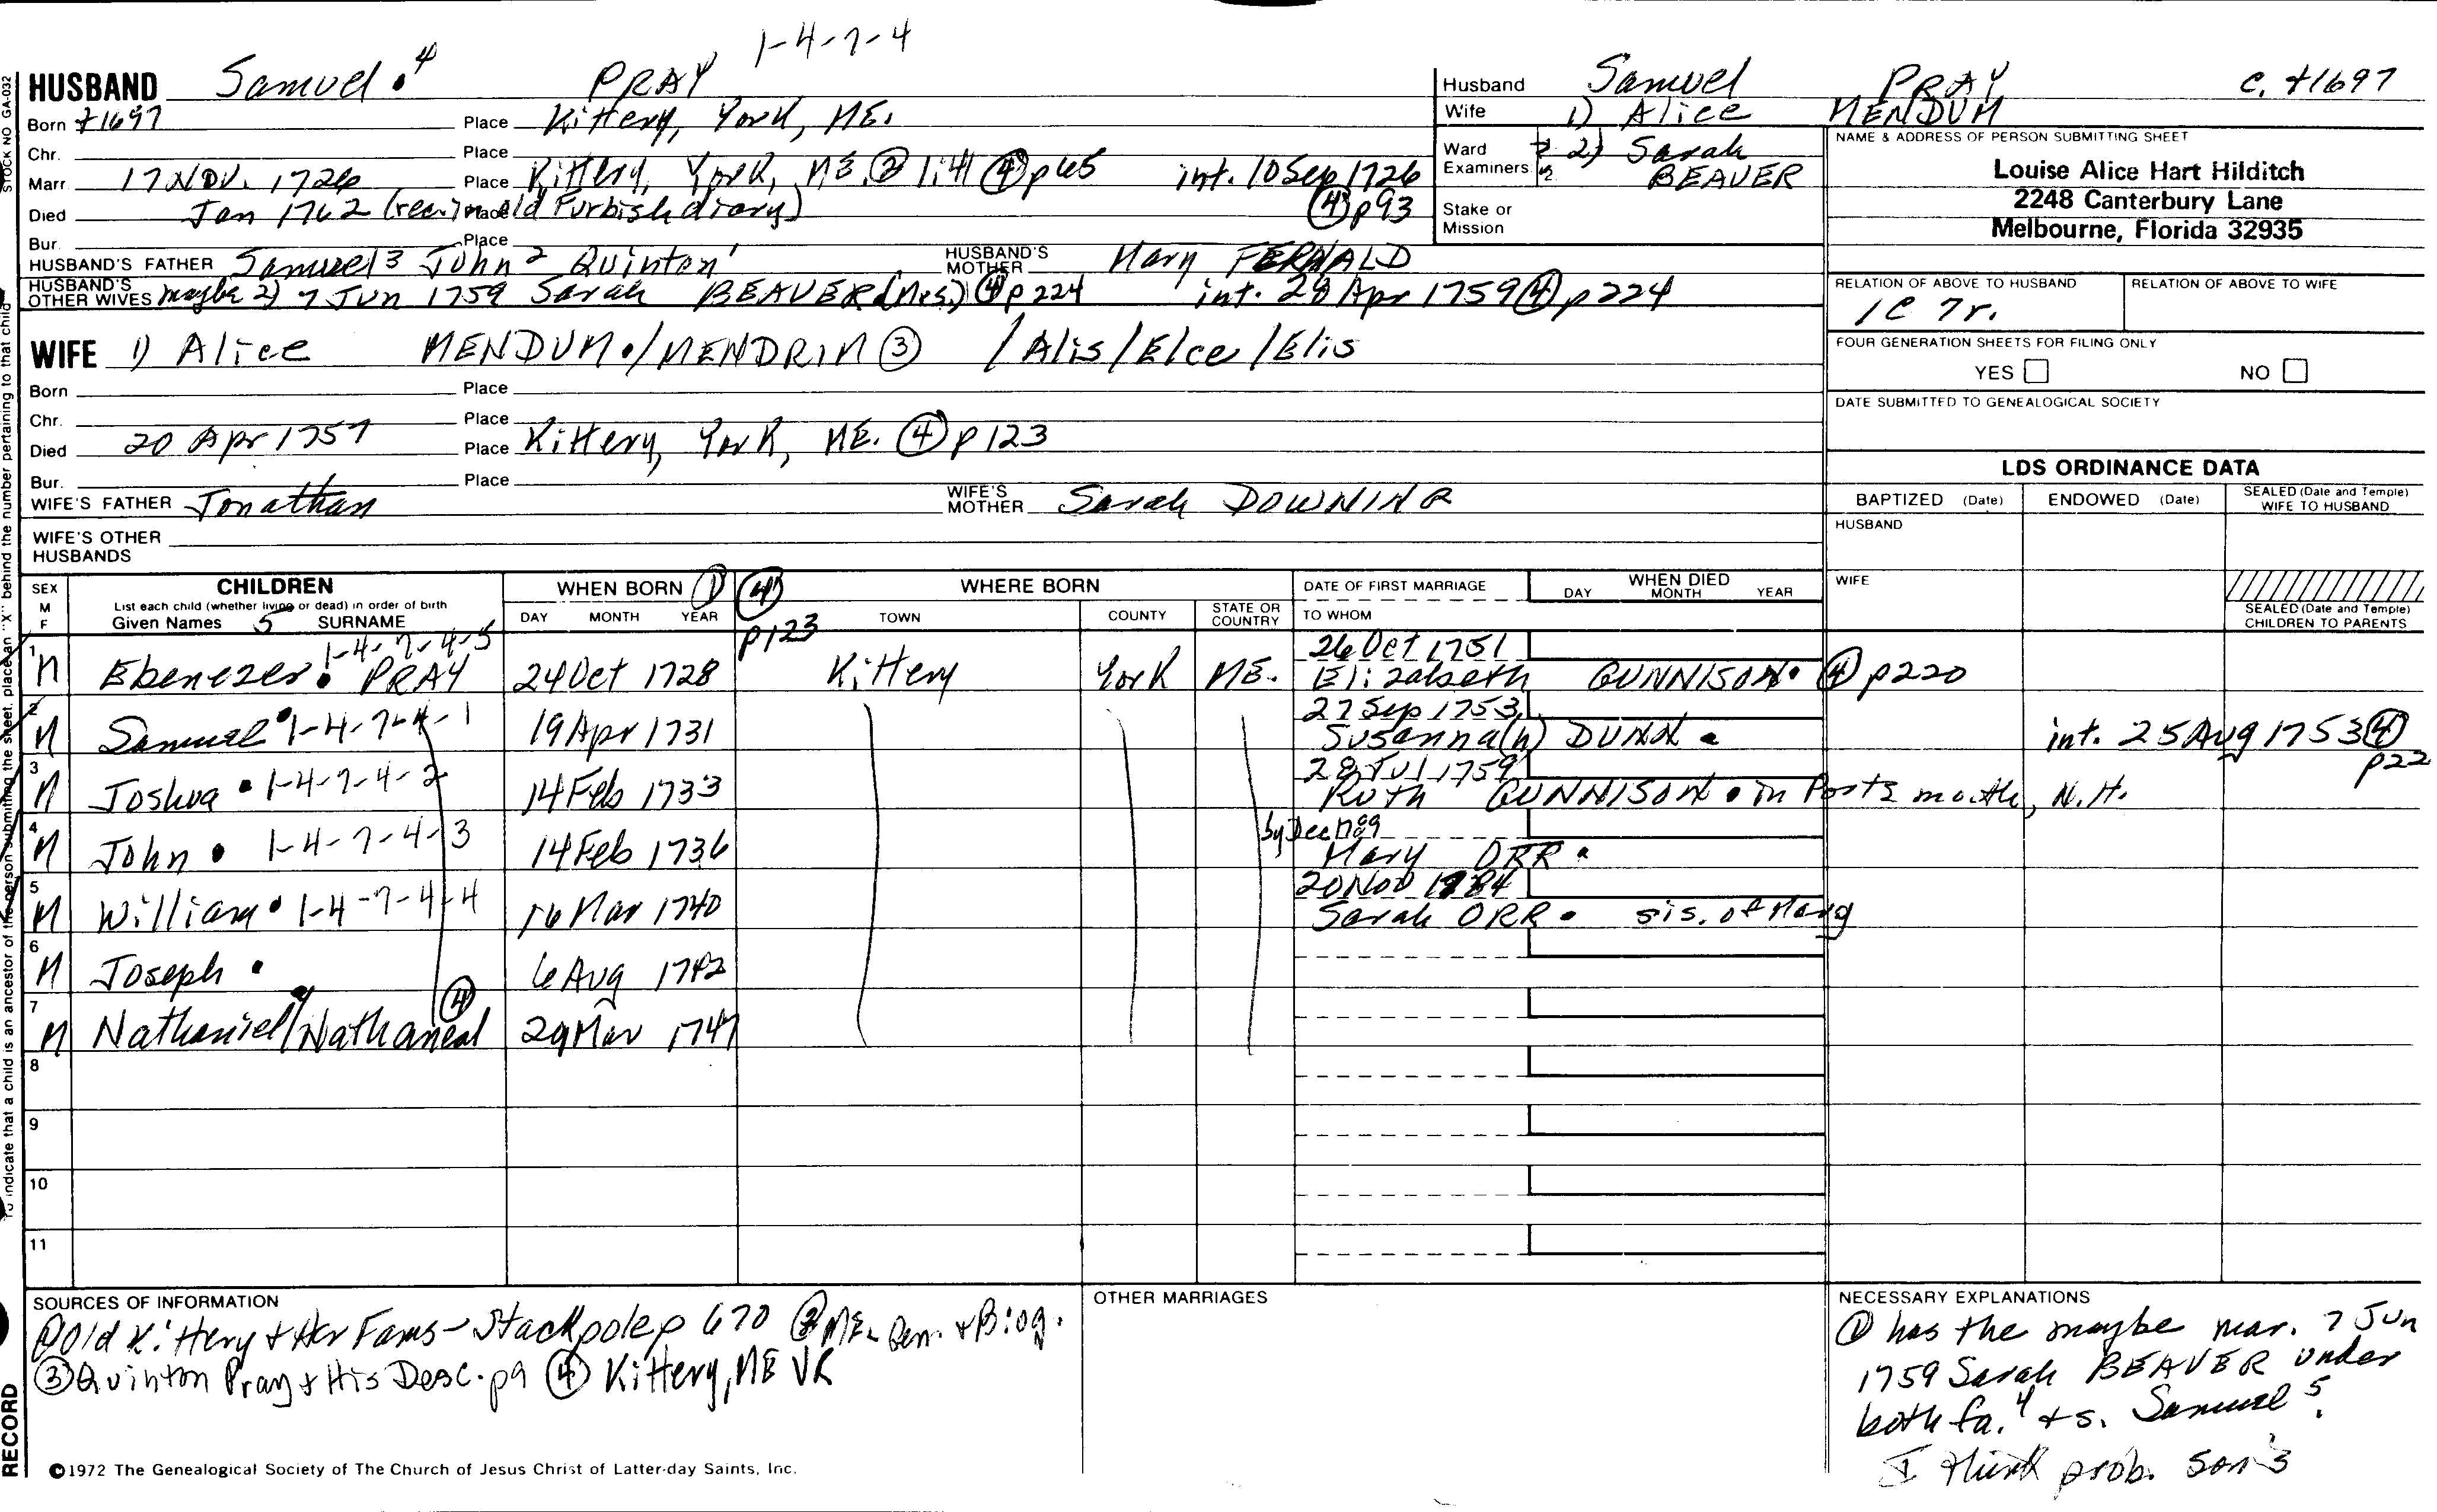 1-4-7-4
HUSBAND Samuel 4 PRAY
Born ±1697 Place Kittery, York, ME.
Chr. Place
Marr 17 NOV. 1726 Place Kittery, York, ME ② 1:41 ④ p 65 int. 10 Sep 1726
Died Jan 1762 (rec. in old Furbish diary) ④ p 93
Bur. Place
HUSBAND'S FATHER Samuel 3 John 2 Quinton 1 HUSBAND'S MOTHER Mary FERNALD
HUSBAND'S OTHER WIVES maybe 2) 7 Jun 1759 Sarah BEAVER (Mrs.) ④ p 224 int. 28 Apr 1759 ④ p 224
WIFE 1) Alice MENDUM./MENDRIM ③ /Alis/Elce/Elis
Born Place
Chr. Place
Died 20 Apr 1757 Place Kittery, York, ME. ④ p 123
Bur. Place
WIFE'S FATHER Jonathan WIFE'S MOTHER Sarah DOWNING
WIFE'S OTHER HUSBANDS
Husband Samuel PRAY c. ±1697
Wife 1) Alice MENDUM
Ward 2) Sarah
Examiners: 1 2 BEAVER
Stake or Mission
NAME & ADDRESS OF PERSON SUBMITTING SHEET
Louise Alice Hart Hilditch
2248 Canterbury Lane
Melbourne, Florida 32935
RELATION OF ABOVE TO HUSBAND RELATION OF ABOVE TO WIFE
1C 7r.
FOUR GENERATION SHEETS FOR FILING ONLY
YES NO
DATE SUBMITTED TO GENEALOGICAL SOCIETY
LDS ORDINANCE DATA
BAPTIZED (Date) ENDOWED (Date) SEALED (Date and Temple) WIFE TO HUSBAND
HUSBAND
WIFE
SEALED (Date and Temple) CHILDREN TO PARENTS
SEX M F
CHILDREN
List each child (whether living or dead) in order of birth
Given Names 5 SURNAME
WHEN BORN ① ④ p123
DAY MONTH YEAR
WHERE BORN
TOWN COUNTY STATE OR COUNTRY
DATE OF FIRST MARRIAGE
TO WHOM
WHEN DIED
DAY MONTH YEAR
1-4-7-4-5 26 Oct 1751
1 M Ebenezer. PRAY 24 Oct 1728 Kittery York ME. Elizabeth GUNNISON. ④ p220
27 Sep 1753
2 M Samuel 1-4-7-4-1 19 Apr 1731 Susanna(h) DUNN. int. 25 Aug 1753 ④ p22
28 Jul 1759
3 M Joshua 1-4-7-4-2 14 Feb 1733 Ruth GUNNISON. in Portsmouth, N.H.
by Dec 1789
4 M John 1-4-7-4-3 14 Feb 1736 Mary ORR.
20 Nov 1784
5 M William 1-4-7-4-4 16 Mar 1740 Sarah ORR. sis. of Mary
6 M Joseph. 6 Aug 1742
7 M Nathaniel/Nathaneal ④ 29 Mar 1747
8
9
10
11
SOURCES OF INFORMATION
① Old Kittery & Her Fams - Stackpole p 670 ② ME. Gen. & Biog.
③ Quinton Pray & His Desc. p9 ④ Kittery, ME VR
OTHER MARRIAGES
NECESSARY EXPLANATIONS
① has the maybe mar. 7 Jun
1759 Sarah BEAVER under
both fa. 4 + s. Samuel 5.
I think prob. son's
©1972 The Genealogical Society of The Church of Jesus Christ of Latter-day Saints, Inc.
STOCK NO GA-032
To indicate that a child is an ancestor of the person submitting the sheet, place an "X" behind the number pertaining to that child
RECORD